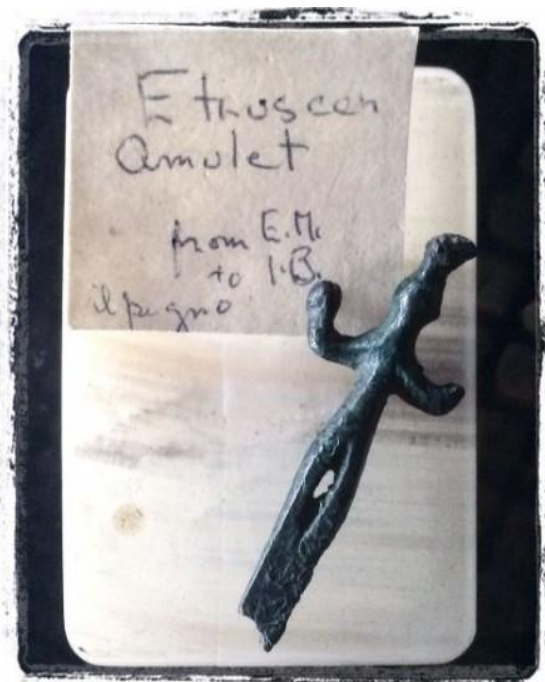 Etruscan
Amulet
from E.M.
to I.B.
il pegno